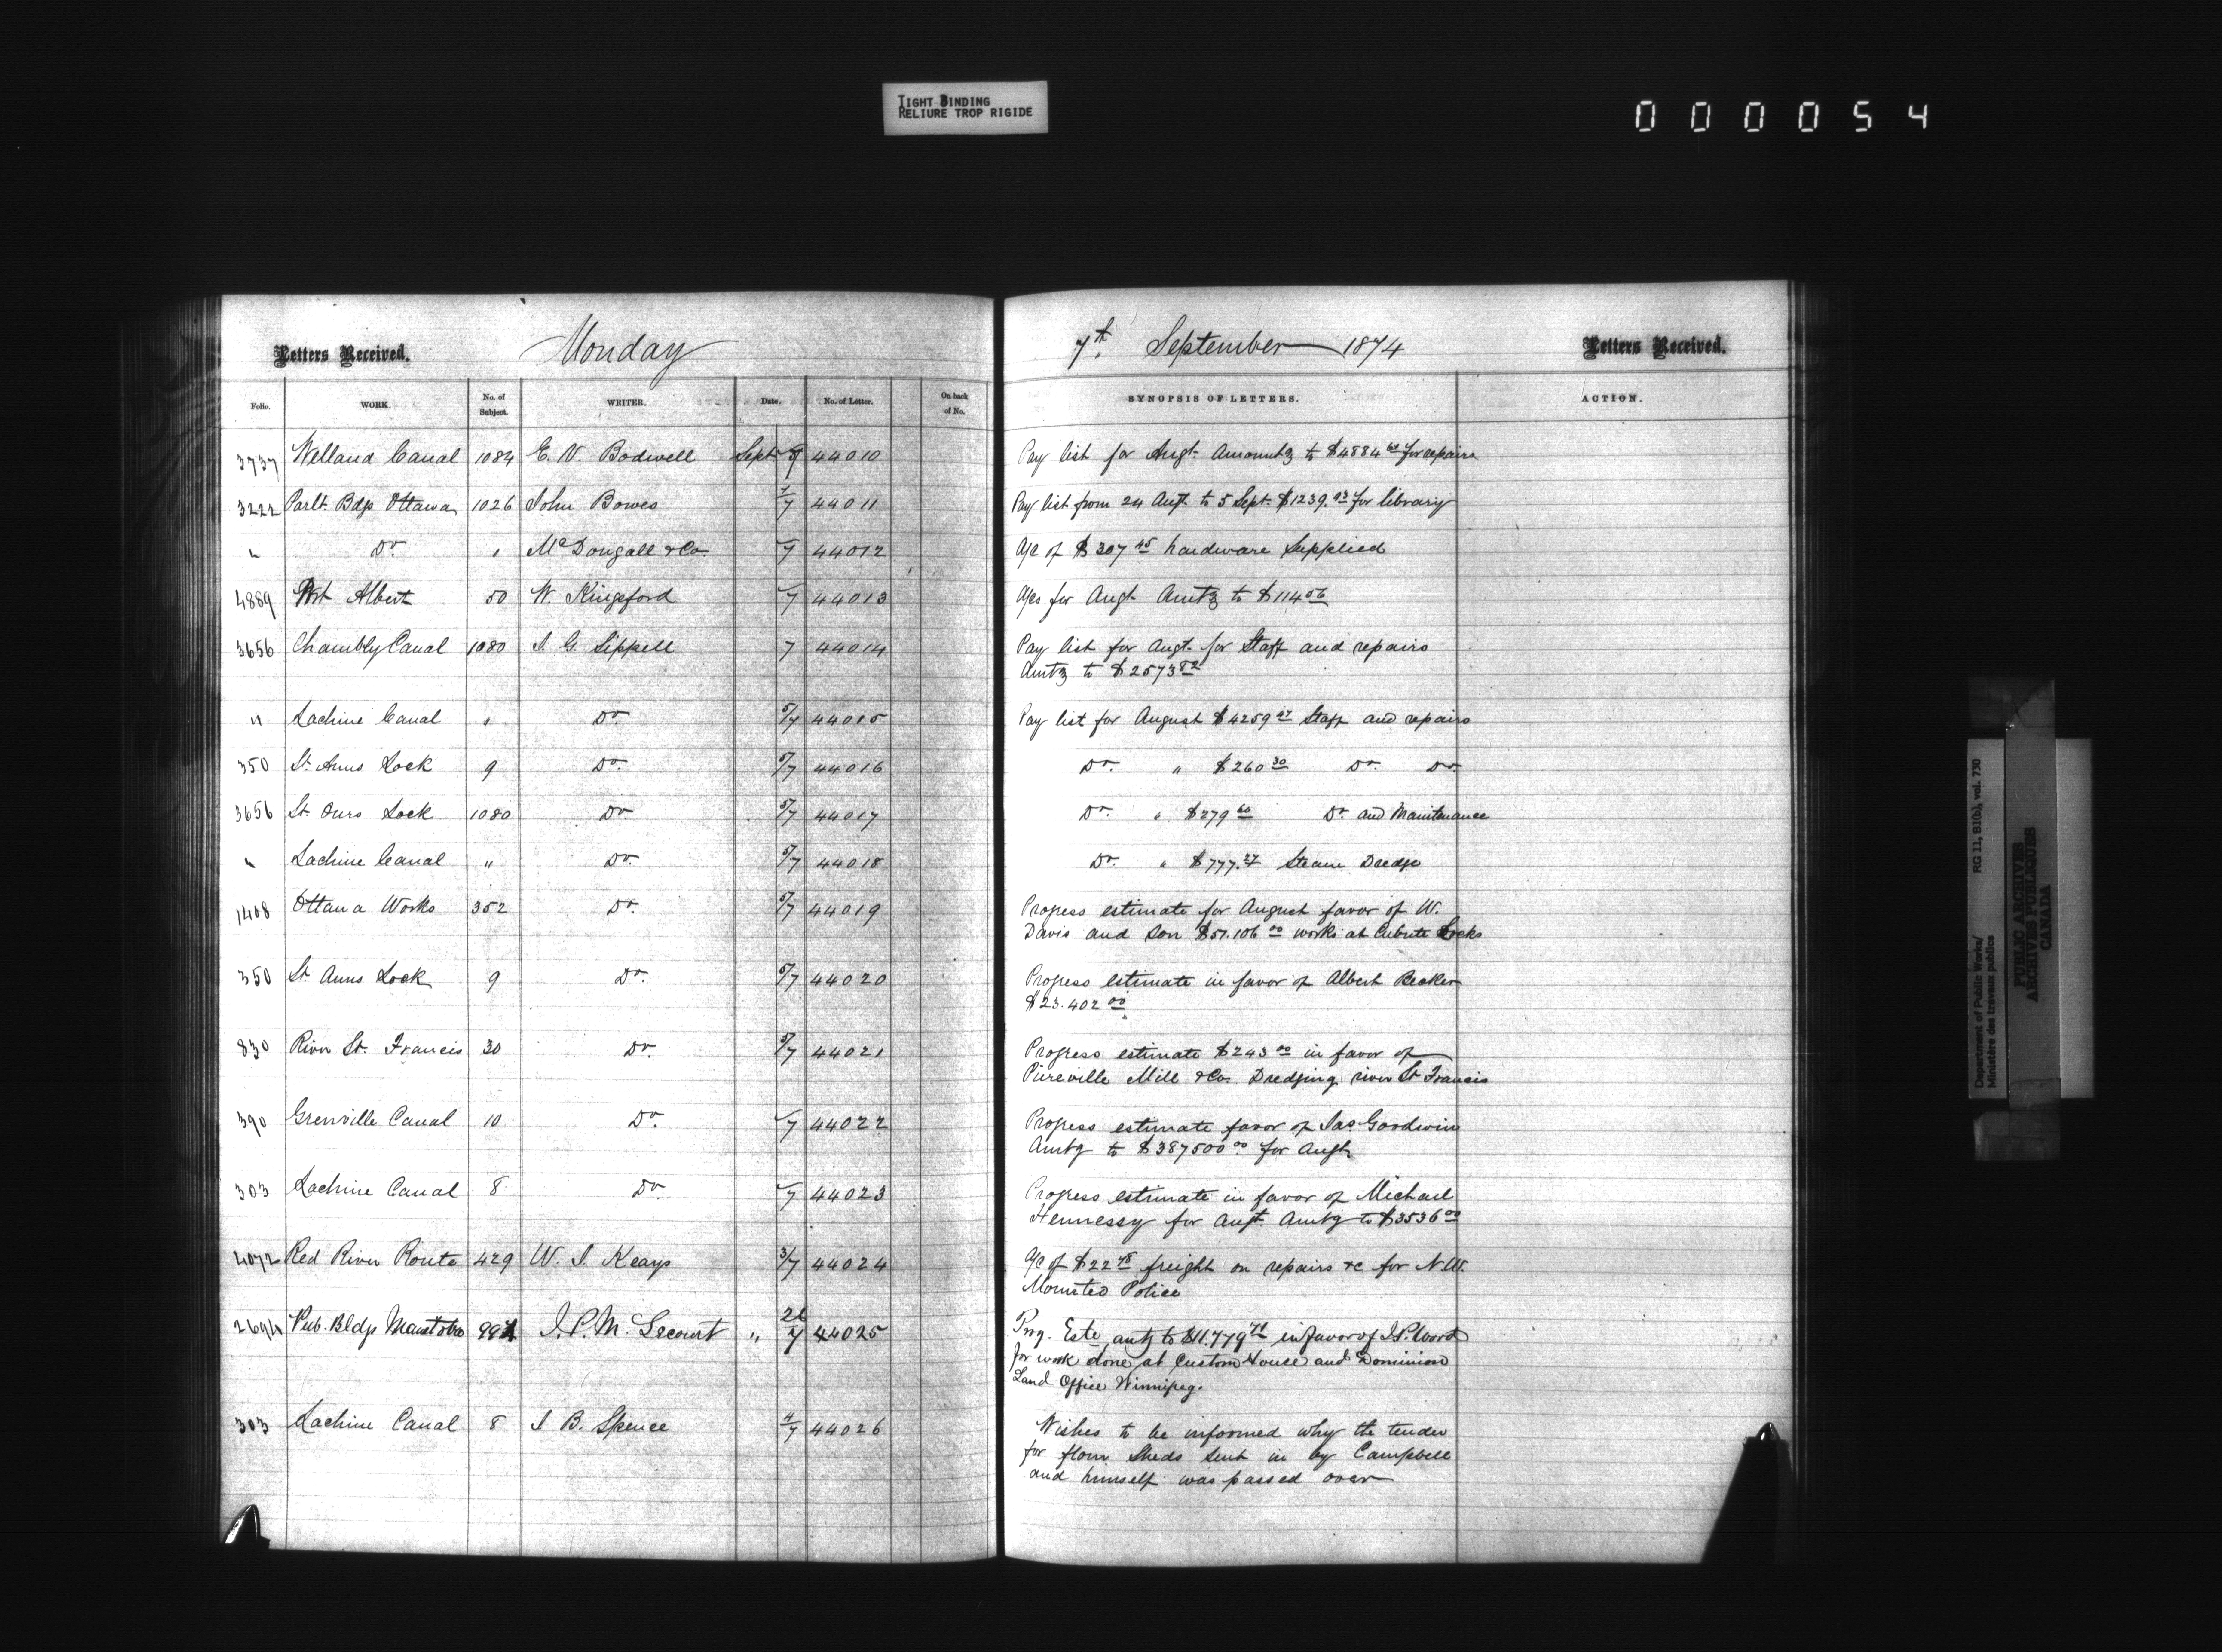 TIGHT BINDING
RELIURE TROP RIGIDE
000054
Letters Received. Monday
Folio. WORK. No. of Subject. WRITER. Date. No. of Letter. On back of No.
3737 Welland Canal 1084 E. V. Bodwell Sept 44010
3222 Parlt. Bdgs Ottawa 1026 John Bowes 7 44011
" Do. " McDougall & Co. 7 44012
4889 Port Albert 50 W. Kingsford 7 44013
3656 Chambly Canal 1080 J. G. Sippell 7 44014
" Lachine Canal " Do 5/7 44015
350 St. Anns Lock 9 Do. 5/7 44016
3656 St. Ours Lock 1080 Do 5/7 44017
" Lachine Canal " Do. 5/7 44018
1408 Ottawa Works 352 Do. 5/7 44019
350 St Anns Lock 9 Do. 5/7 44020
830 River St. Francis 30 Do. 5/7 44021
390 Grenville Canal 10 Do. 7 44022
303 Lachine Canal 8 Do. 7 44023
4072 Red River Route 429 W. J. Keays 3/7 44024
2694 Pub. Bldgs Manitoba J. P. M. Lecourt " 44025
303 Lachine Canal 8 J B. Spence 4/7 44026
7th. September 1874 Letters Received.
SYNOPSIS OF LETTERS. ACTION.
Pay list for Augt. Amountg to $4884 for repairs
Pay list from 24 Augt to 5 Sept. $1239.93 for library
A/c of $307 45 hardware Supplied
A/cs for Augt Amtg to $114 56
Pay list for Augt. for Staff and repairs
Amtg to $2573 82
Pay list for August $4259 47 Staff and repairs
Do. " $260 30 Do. Do.
Do. " $279 60 Do. and Maintenance
Do. " $777.27 Steam Dredge
Progress estimate for August favor of W.
Davis and Son $51.106 00 works at Culbute Locks
Progress estimate in favor of Albert Becker
$23.402 00
Progress estimate $243 00 in favor of
Mill & Co. Dredging river St Francis
Progress estimate favor of Jas Goodwin
Amtg to $387500 00 for Augt.
Progress estimate in favor of Michael
Hennessy for Augt. Amtg to $3536 00
A/c of $22 freight on repairs &c for N.W.
Mounted Police
Prog. Este. amtg to $11.779 71 in favor of J.P.
for work done at Custom House and Dominion
Land Office Winnipeg.
Wishes to be informed why the tender
for flour Sheds sent in by Campbell
and himself was passed over
Department of Public Works/
Ministère des travaux publics
RG 11, B1(a), vol. 730
PUBLIC ARCHIVES
ARCHIVES PUBLIQUES
CANADA